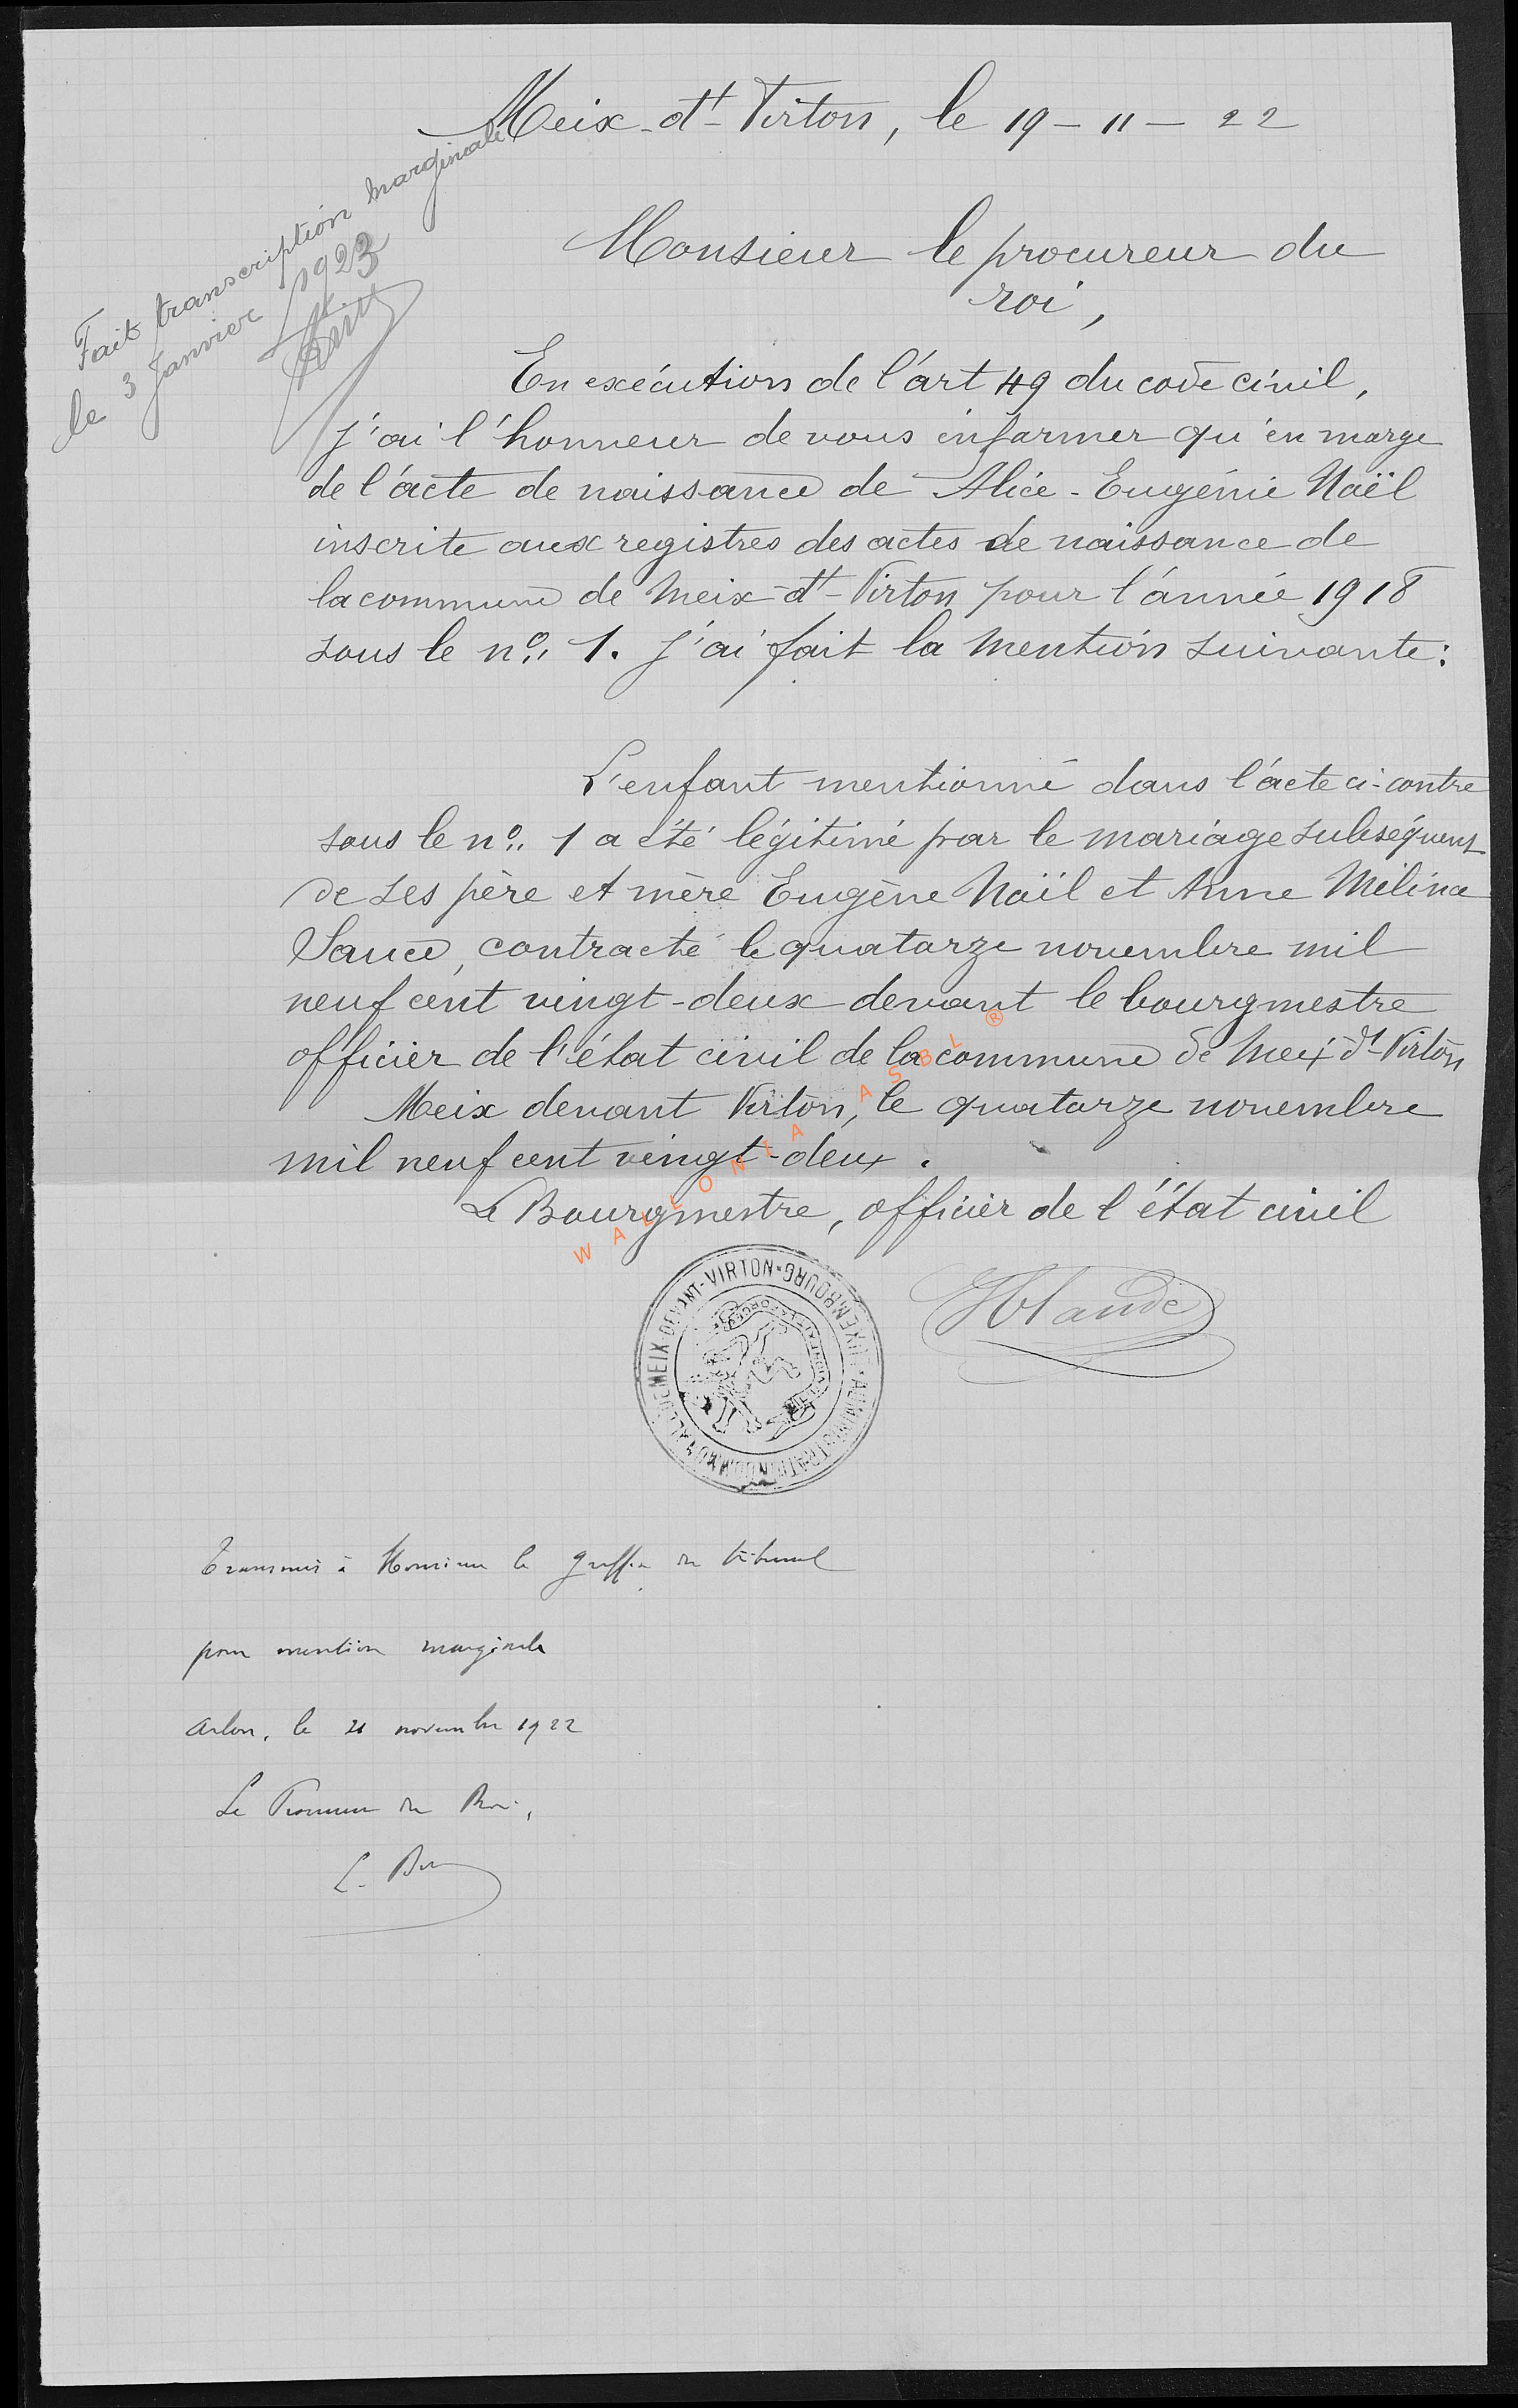 Meix-dt-Virton, le 19-11-22
Fait transcription marginale
le 3 Janvier 1923
Monsieur le procureur du
roi,
En exécution de l'art 49 du code civil,
j'ai l'honneur de vous informer qu'en marge
de l'acte de naissance de Alice-Eugénie Noël
inscrite aux registres des actes de naissance de
la commune de Meix-dt-Virton pour l'année 1918
sous le no 1. J'ai fait la mention suivante:
L'enfant mentionné dans l'acte ci-contre
sous le no 1 a été légitimé par le mariage subséquent
de ses père et mère Eugène Noël et Anne Mélina
Sauce, contracté le quatorze novembre mil
neuf cent vingt-deux devant le bourgmestre
officier de l'état civil de la commune de Meix dt-Virton
Meix devant Virton, le quatorze novembre
mil neuf cent vingt-deux.
Le Bourgmestre, officier de l'état civil
WALLONIA ASBL ®
MEIX-DEVANT-VIRTON * LUXEMBOURG * ADMINISTRATION COMMUNALE DE
Transmis à Monsieur le greffier du tribunal
pour mention marginale
Arlon, le 21 novembre 1922
Le Procureur du Roi,